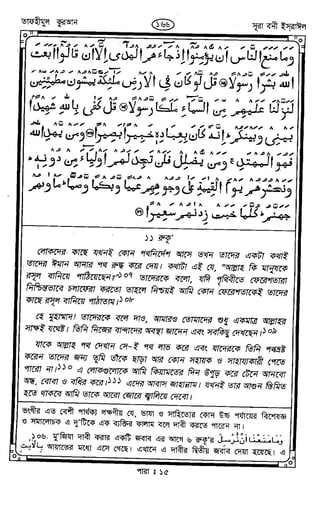 তাফহীমুল কুরআন
১৬৬
সূরা বনী ইসরাঈল
وَمَا مَنَعَ النَّاسَ اَنْ يُّؤْمِنُوْٓا اِذْ جَآءَهُمُ الْهُدٰٓى اِلَّآ اَنْ قَالُوْٓا اَبَعَثَ
اللّٰهُ بَشَرًا رَّسُوْلًا ۞ قُلْ لَّوْ كَانَ فِى الْاَرْضِ مَلٰٓئِكَةٌ يَّمْشُوْنَ مُطْمَئِنِّيْنَ
لَنَزَّلْنَا عَلَيْهِمْ مِّنَ السَّمَآءِ مَلَكًا رَّسُوْلًا ۞ قُلْ كَفٰى بِاللّٰهِ شَهِيْدًۢا
بَيْنِىْ وَبَيْنَكُمْ ؕ اِنَّهٗ كَانَ بِعِبَادِهٖ خَبِيْرًۢا بَصِيْرًا ۞ وَمَنْ يَّهْدِ اللّٰهُ
فَهُوَ الْمُهْتَدِ ۚ وَمَنْ يُّضْلِلْ فَلَنْ تَجِدَ لَهُمْ اَوْلِيَآءَ مِنْ دُوْنِهٖ ؕ
وَنَحْشُرُهُمْ يَوْمَ الْقِيٰمَةِ عَلٰى وُجُوْهِهِمْ عُمْيًا وَّبُكْمًا وَّصُمًّا ؕ مَاْوٰىهُمْ
جَهَنَّمُ ؕ كُلَّمَا خَبَتْ زِدْنٰهُمْ سَعِيْرًا ۞
১১ রুকূ'
লোকদের কাছে যখনই কোন পথনির্দেশ আসে তখন তাদের একটা কথাই
তাদের ঈমান আনার পথ রুদ্ধ করে দেয়। কথাটা এই যে, "আল্লাহ কি মানুষকে
রসূল বানিয়ে পাঠিয়েছেন?"১০৭ তাদেরকে বলো, যদি পৃথিবীতে ফেরেশতারা
নিশ্চিন্তভাবে চলাফেরা করতো তাহলে নিশ্চয়ই আমি কোন ফেরেশতাকেই তাদের
কাছে রসূল বানিয়ে পাঠাতাম।১০৮
হে মুহাম্মাদ! তাদেরকে বলে দাও, আমারও তোমাদের শুধু একমাত্র আল্লাহর
সাক্ষই যথেষ্ট। তিনি নিজের বান্দাদের অবস্থা জানেন এবং সবকিছু দেখছেন।১০৯
যাকে আল্লাহ পথ দেখান সে-ই পথ লাভ করে এবং যাদেরকে তিনি পথভ্রষ্ট
করেন তাদের জন্য তুমি তাঁকে ছাড়া আর কোন সহায়ক ও সাহায্যকারী পেতে
পারো না।১১০ এ লোকগুলোকে আমি কিয়ামতের দিন উপুড় করে টেনে আনবো
অন্ধ, বোবা ও বধির করে।১১১ এদের আবাস জাহান্নাম। যখনই তার আগুন স্তিমিত
হতে থাকবে আমি তাকে আরো জোরে জ্বালিয়ে দেবো।
ভংগীর এত বেশী পার্থক্য লক্ষণীয় যে, ভাষা ও সাহিত্যের কোন উচ্চ পর্যায়ের বিশেষজ্ঞ
ও সমালোচক এ দু'টিকে এক ব্যক্তির কালাম বলে দাবী করতে পারেন না।
১০৬. মু'জিযা দাবী করার একটা জবাব এর আগে ৬ রুকূ'র وَمَا مَنَعَنَا اَنْ نُّرْسِلَ
بِالْاٰيٰتِ আয়াতের মধ্যে এসে গেছে। এখানে এ দাবীর দ্বিতীয় জবাব দেয়া হয়েছে। এ
পারা : ১৫